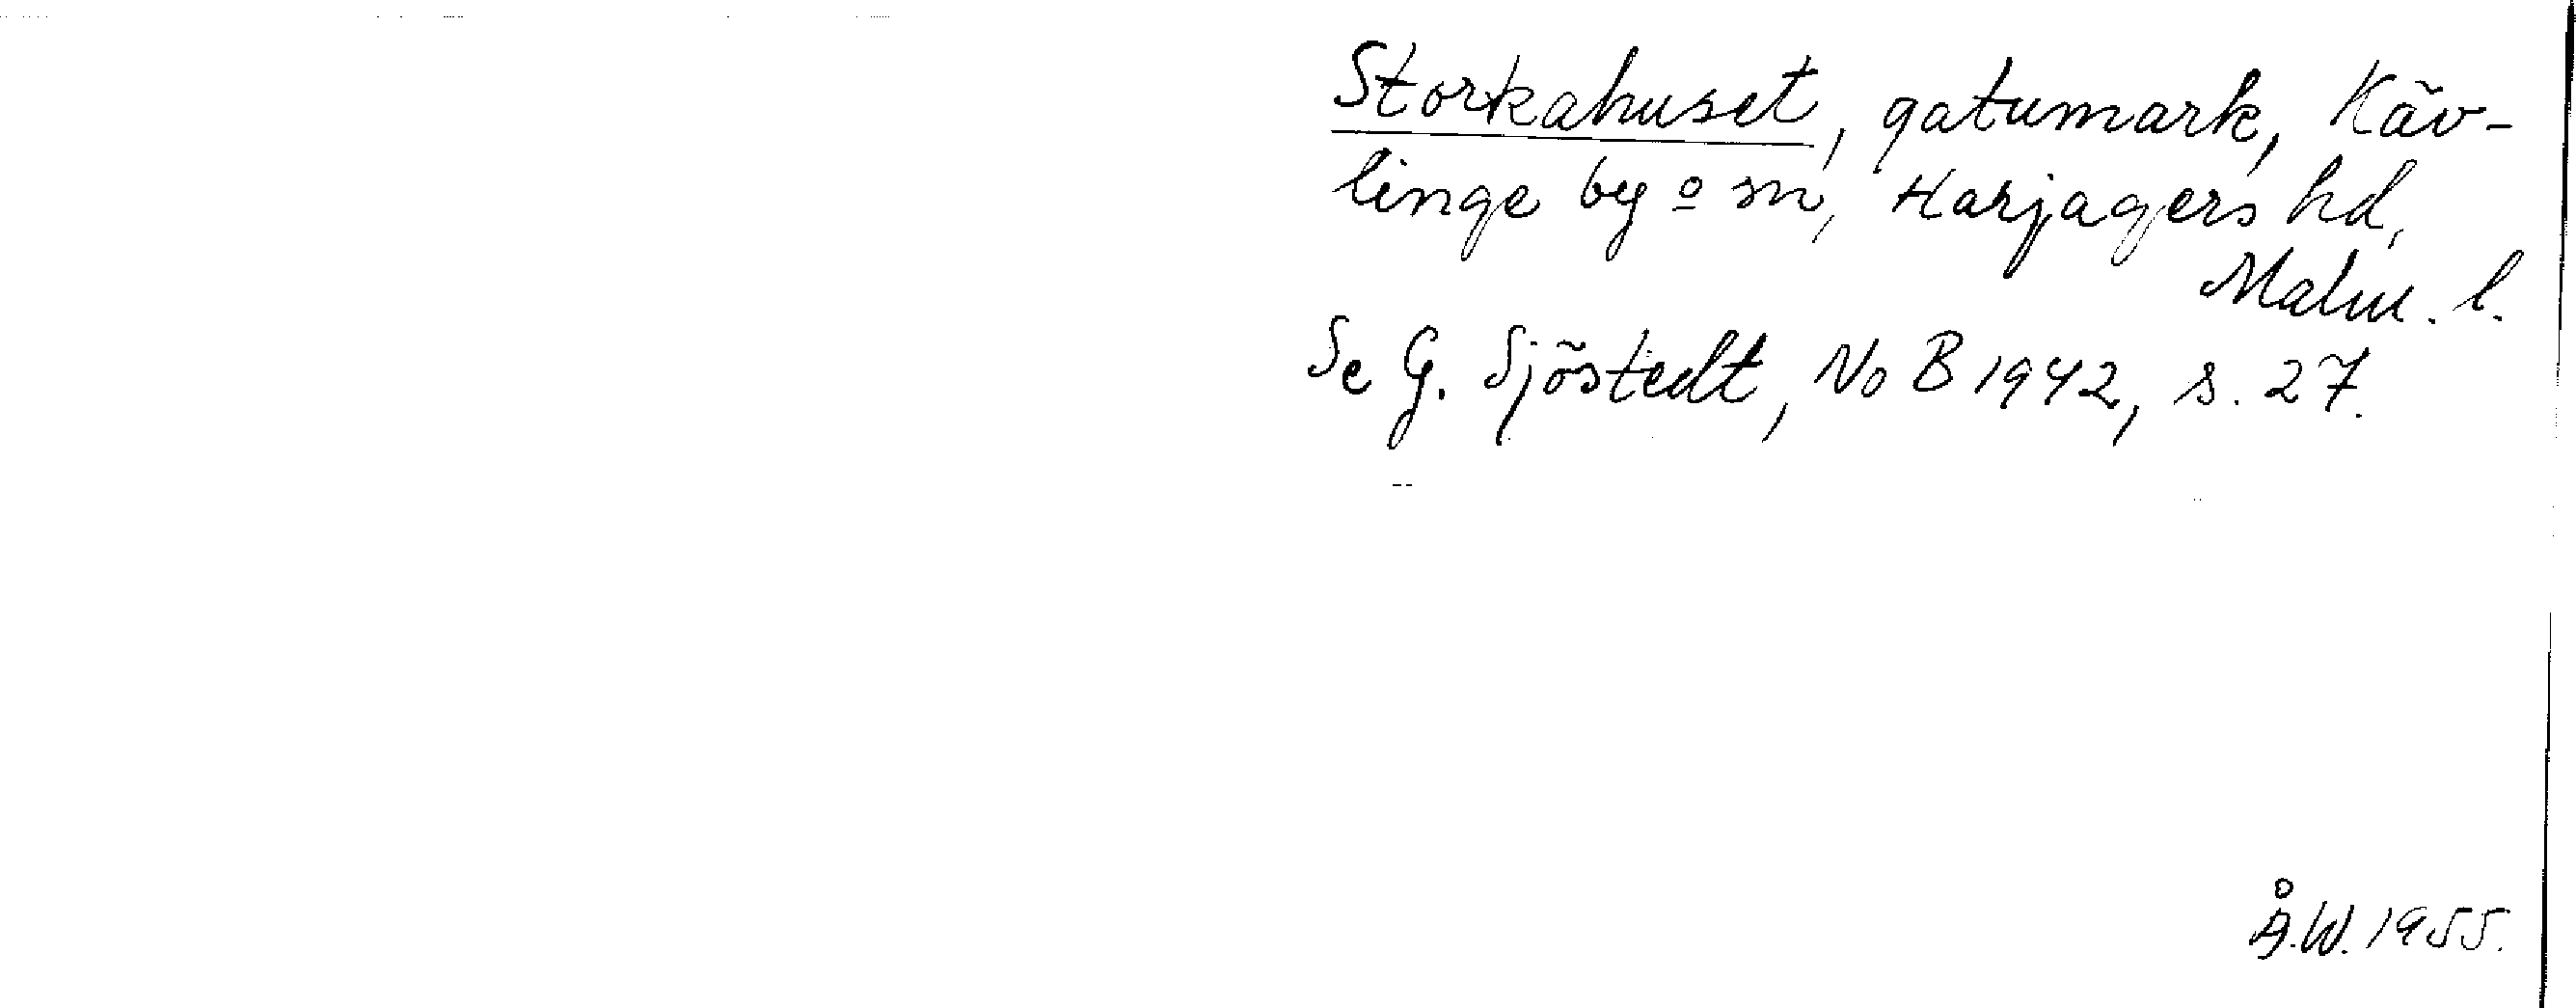 Storkahuset, gatumark, Käv-
linge by o sn, Harjagers hd,
Malm. l.
Se G. Sjöstedt, NoB 1942, s. 27.
Å.W. 1955.